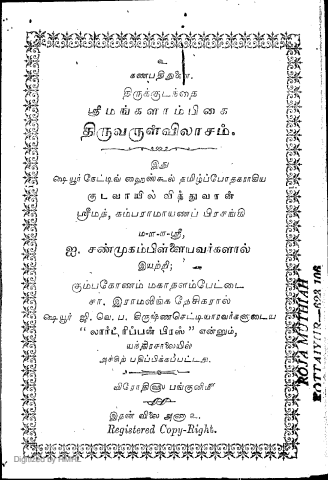 உ
கணபதிதுணை.
திருக்குடந்தை
ஸ்ரீமங்களாம்பிகை
திருவருள்விலாசம்.
இது
ஷையூர் நேட்டிவ் ஹைஸ்கூல் தமிழ்ப்போதகராகிய
குடவாயில் வித்துவான்
ஸ்ரீமத், கம்பராமாயணப் பிரசங்கி
ம-ள-ள-ஸ்ரீ,
ஐ. சண்முகம்பிள்ளையவர்களால்
இயற்றி;
கும்பகோணம் மகாதளம்பேட்டை
சா. இராமலிங்க தேசிகரால்
ஷையூர் ஜி. வெ. ப. கிருஷ்ணசெட்டியாரவர்களுடைய
" லார்ட்ரிப்பன் பிரஸ் " என்னும்,
யந்திரசாலையில்
அச்சிற் பதிப்பிக்கப்பட்டது.
விரோதிஹு பங்குனிமீ
இதன் விலை அணா உ.
Registered Copy-Right.
ROJA MUTHIAH
KOTTAIYUR—623 106
Digitized by RMRL